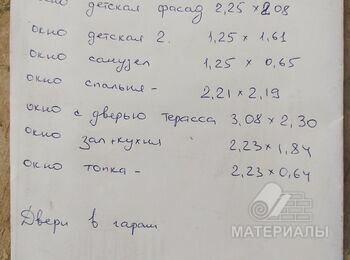 окно детская фасад 2,25 × 2,08
окно детская 2. 1,25 × 1,61
окно санузел 1,25 × 0,65
окно спальня - 2,21 × 2,19
окно с дверью терасса 3,08 × 2,30
окно зал + кухня 2,23 × 1,84
окно топка - 2,23 × 0,64
Двери в гараж
МАТЕРИАЛЫ